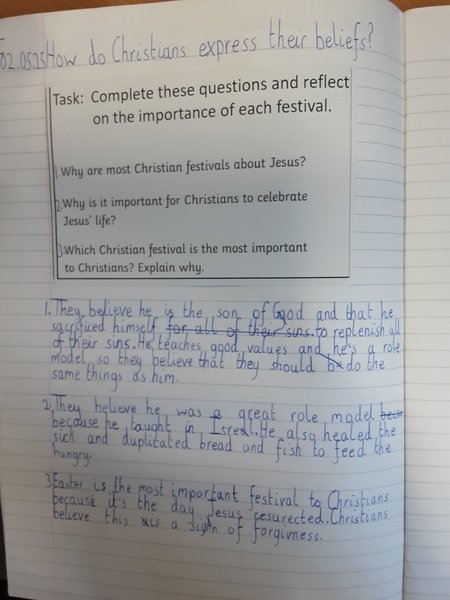 02.05.25 How do Christians express their beliefs?
Task: Complete these questions and reflect
on the importance of each festival.
1. Why are most Christian festivals about Jesus?
2. Why is it important for Christians to celebrate
Jesus' life?
3. Which Christian festival is the most important
to Christians? Explain why.
1. They believe he is the son of God and that he
sacrificed himself for all of their sins. to replenish all
of their sins. He teaches good values and he's a role
model, so they believe that they should do the
same things as him.
2. They believe he was a great role model
because he taught in Isreal. He also healed the
sick and duplitated bread and fish to feed the
hungry.
3. Easter is the most important festival to Christians
because it's the day Jesus resurected. Christians
believe this is a sign of forgivness.